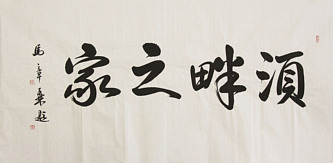 湏畔之家
馬章乗題